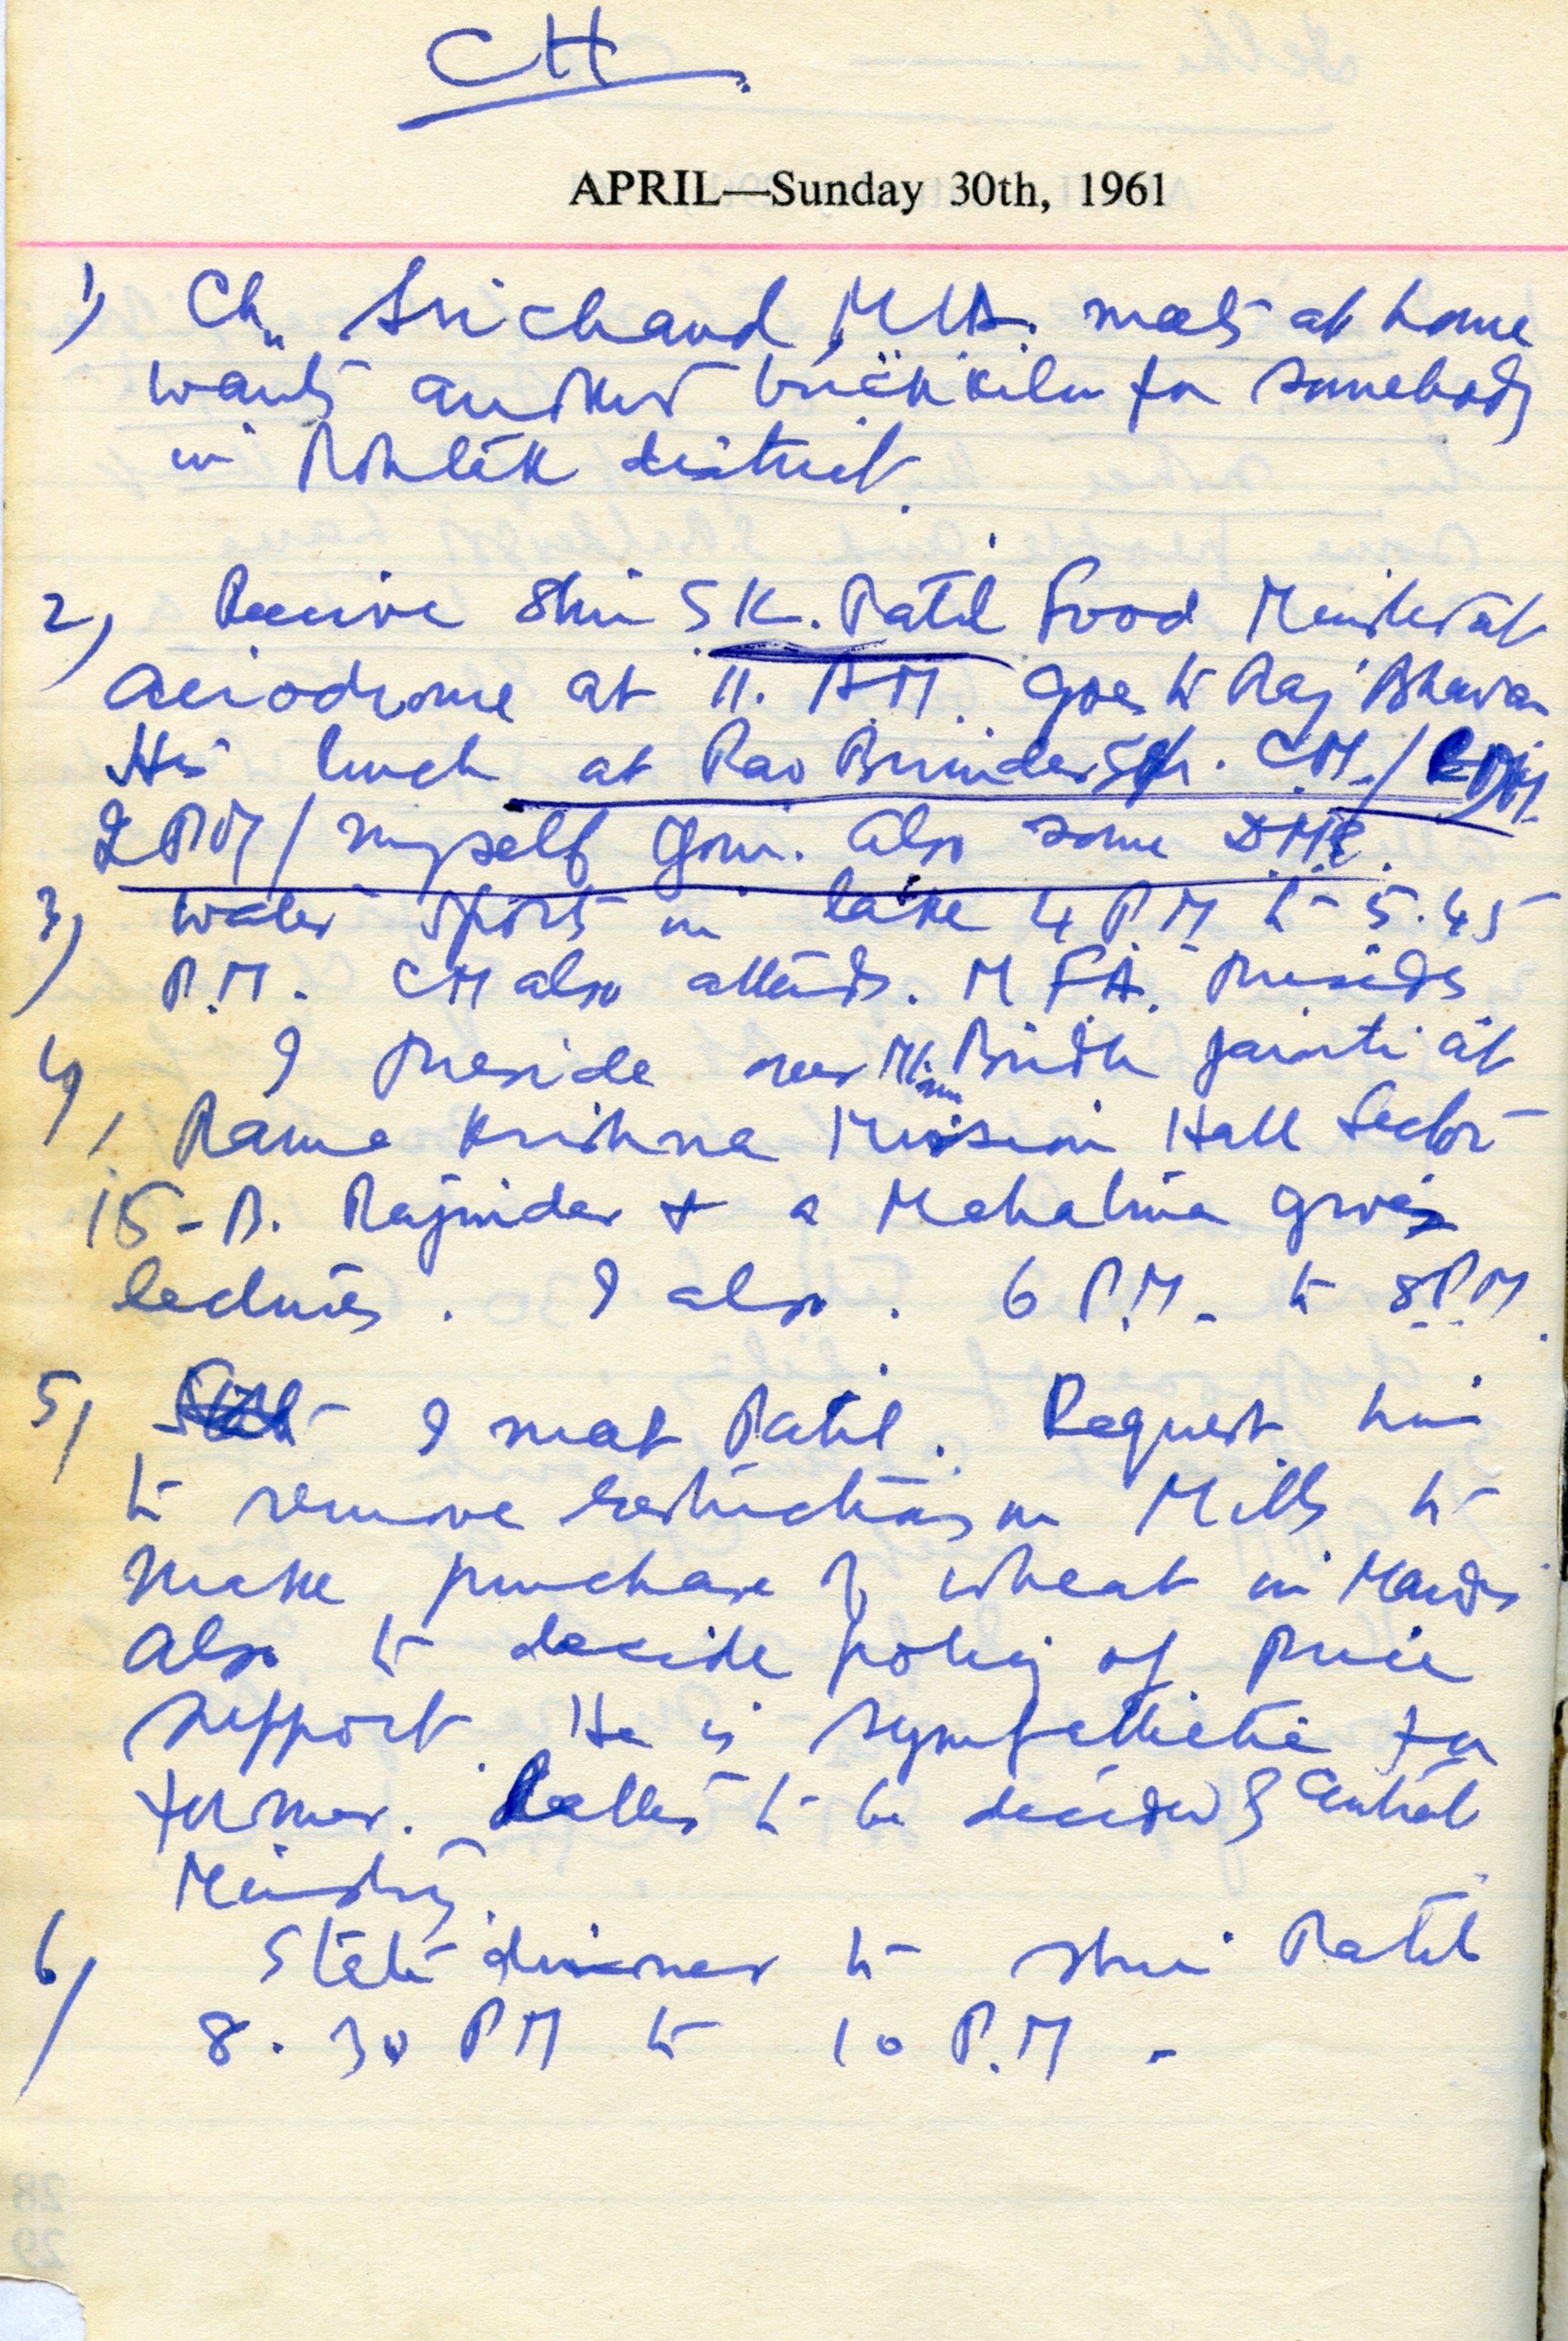 CH
APRIL—Sunday 30th, 1961
1) Ch. Srichand, MLA. meets at home
wants another brick kiln for somebody
in Rohtak district.
2) Receive Shri S K. Patil Food Minister at
aeriodrome at 11. A.M. goes to Raj Bhavan
His lunch at Rao Birinder Singh. CM /
/ myself join. also some
3) Water sports in lake 4 P M to 5.45
P.M. CM also attends. M F A. presides
4) I preside over Budh Jainti at
Rama Krishna Mission Hall Sector
15-B. Rajinder + a Mahatma gives
lectures. I also. 6 P.M. to 8 P.M.
5) I meet Patil. Request him
to remove restrictions on Mills to
make purchase of wheat in Mandis
also to decide policy of price
support. He is sympathetic for
former. Latter to be decided by Central
Ministry.
6) State dinner to Shri Patil
8.30 PM to 10 P.M.